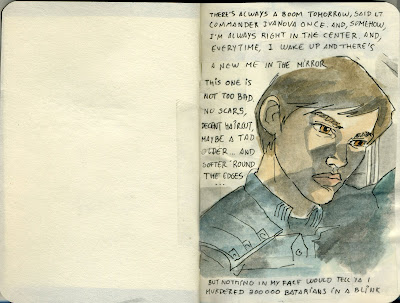 THERE'S ALWAYS A BOOM TOMORROW, SAID LT
COMMANDER IVANOVA ONCE. AND, SOMEHOW,
I'M ALWAYS RIGHT IN THE CENTER. AND,
EVERYTIME, I WAKE UP AND THERE'S
A NEW ME IN THE MIRROR
THIS ONE IS
NOT TOO BAD
NO SCARS,
DECENT HAIRCUT,
MAYBE A TAD
OLDER... AND
SOFTER 'ROUND
THE EDGES
...
BUT NOTHING IN MY FACE WOULD TELL YA I
MURDERED 300000 BATARIANS IN A BLINK